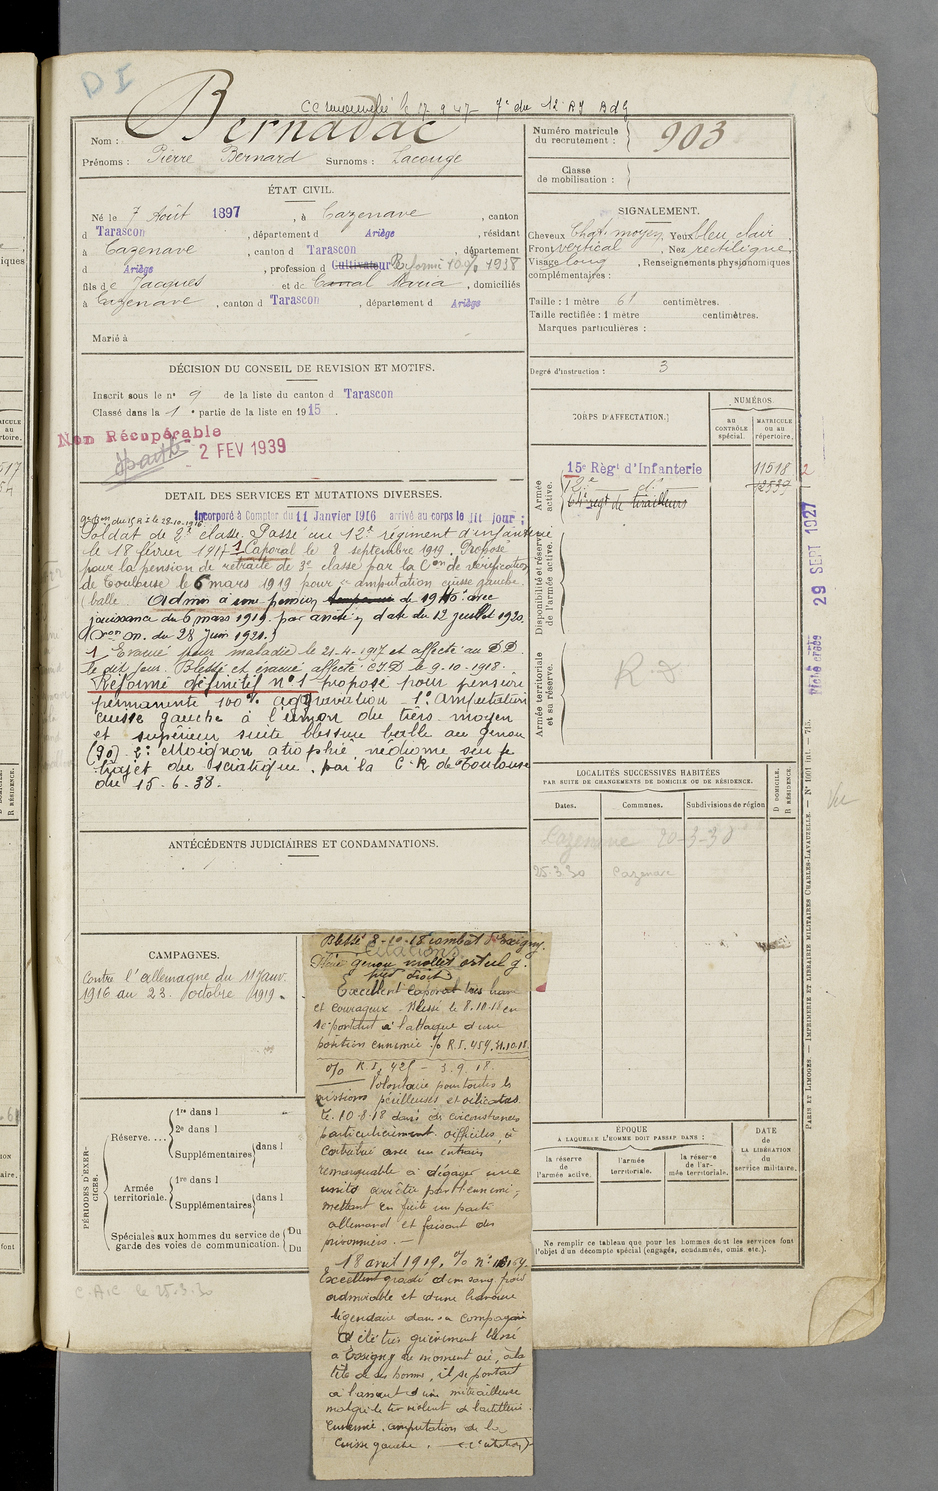 D I
CC renouvelé le 17 9 47 7e du 12 RJ BdG
Nom : Bernadac
Prénoms : Pierre Bernard Surnoms : Lacouge
Numéro matricule du recrutement : 903
Classe de mobilisation :
ÉTAT CIVIL.
Né le 7 Août 1897, à Cazenave, canton
d Tarascon, département d Ariège, résidant
à Cazenave, canton d Tarascon, département
d Ariège, profession d Cultivateur Réformé 100% 1938
fils de Jacques et de Carral Maria, domiciliés
à Cazenave, canton d Tarascon, département d Ariège
Marié à
SIGNALEMENT.
Cheveux Chat. moyen Yeux bleu clair
Front vertical, Nez rectiligne.
Visage long, Renseignements physionomiques
complémentaires :
Taille : 1 mètre 61 centimètres.
Taille rectifiée : 1 mètre centimètres.
Marques particulières :
Degré d'instruction : 3
DÉCISION DU CONSEIL DE REVISION ET MOTIFS.
Inscrit sous le n° 9 de la liste du canton d Tarascon
Classé dans la 1e partie de la liste en 1915.
Non Récupérable
2 FEV 1939
CORPS D'AFFECTATION.
NUMÉROS.
AU CONTRÔLE SPÉCIAL.
MATRICULE OU AU RÉPERTOIRE.
Armée active.
15e Régt d'Infanterie 11518 2
12e d° 12539
64e regt de tirailleurs
Disponibilité et réserve de l'armée active.
Armée territoriale et sa réserve.
R.D
29 SEPT 1927
Fiche créée
DETAIL DES SERVICES ET MUTATIONS DIVERSES.
Incorporé à Compter du 11 Janvier 1916 arrivé au corps le dit jour ;
Soldat de 2e classe. Passé au 12e régiment d'infanterie
le 18 février 1917 1 Caporal le 8 septembre 1919. Proposé
pour la pension de retraite de 3e classe par la Con de vérification
de Toulouse le 6 mars 1919 pour "amputation cuisse gauche
(balle. Admis à une pension de 1940 avec
jouissance du 6 mars 1919 par arrêté en date du 12 juillet 1920.
du 28 Juin 1921.)
1 Evacué pour maladie le 21-4-1917 et affecté au DD
le dit jour. Blessé et évacué affecté C.I.D le 9-10-1918.
Réformé définitif n° 1 proposé pour pension
permanente 100% aggravation - 1° Amputation
cuisse gauche à l'union du tiers moyen
et supérieur suite blessure balle au genou
(90) 2° Moignon atrophié névrome sur le
trajet du sciatique. par la C.R de Toulouse
du 15-6-38.
LOCALITÉS SUCCESSIVES HABITÉES
PAR SUITE DE CHANGEMENTS DE DOMICILE OU DE RÉSIDENCE.
Dates. Communes. Subdivisions de région
D DOMICILE.
R RÉSIDENCE.
Cazenave 20-3-30
25.3.30 Cazenave
Vu
PARIS ET LIMOGES. — IMPRIMERIE ET LIBRAIRIE MILITAIRES CHARLES-LAVAUZELLE.
ANTÉCÉDENTS JUDICIAIRES ET CONDAMNATIONS.
CAMPAGNES.
Contre l'Allemagne du 11 Janv.
1916 au 23 octobre 1919.
Blessé 8-10-18 combat d'Essigny.
Citations
Plaie genou mollet orteil g.
pied droit
Excellent caporal très brave
et courageux. Blessé le 8.10.18 en
se portant à l'attaque d'une
position ennemie. O/ R.I. 459. 31.10.18
O/ R.I. 425 - 3.9.18.
Volontaire pour toutes les
missions périlleuses et délicates.
Le 10.8.18 dans des circonstances
particulièrement difficiles, a
contribué avec un entrain
remarquable à dégager une
unité arrêtée par l'ennemi,
mettant en fuite un parti
allemand et faisant des
prisonniers. -
18 avril 1919. O/ n°
Excellent gradé d'un sang froid
admirable et d'une bravoure
légendaire dans sa compagnie
A été très grièvement blessé
à Essigny au moment où, à la
tête de ses hommes, il se portait
à l'assaut d'une mitrailleuse
malgré le tir violent de l'artillerie
ennemie. amputation de la
cuisse gauche.
PÉRIODES D'EXERCICES.
Réserve....
1re dans l
2e dans l
Supplémentaires dans l
Armée territoriale.
1re dans l
Supplémentaires dans l
Spéciales aux hommes du service de garde des voies de communication.
Du
Du
ÉPOQUE
À LAQUELLE L'HOMME DOIT PASSER DANS :
la réserve de l'armée active.
l'armée territoriale.
la réserve de l'armée territoriale.
DATE de LA LIBÉRATION du service militaire.
Ne remplir ce tableau que pour les hommes dont les services font
l'objet d'un décompte spécial (engagés, condamnés, omis, etc.).
C.A.C le 25.3.30